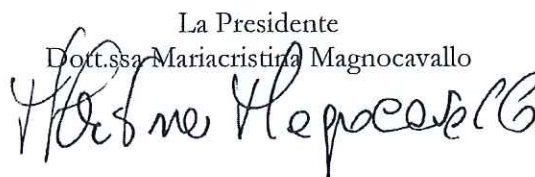 La Presidente
Dott.ssa Mariacristina Magnocavallo